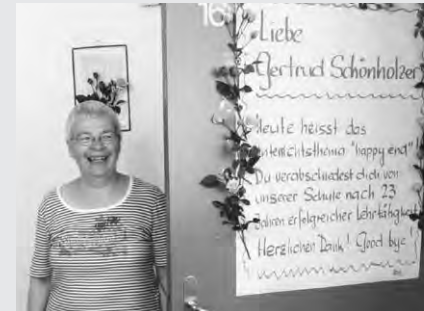 16
Liebe
Gertrud Schönholzer
Heute heisst das
Unterrichtsthema "happy end"
Du verabschiedest dich von
unserer Schule nach 23
Jahren erfolgreicher Lehrtätigkeit
Herzlichen Dank! Good bye!